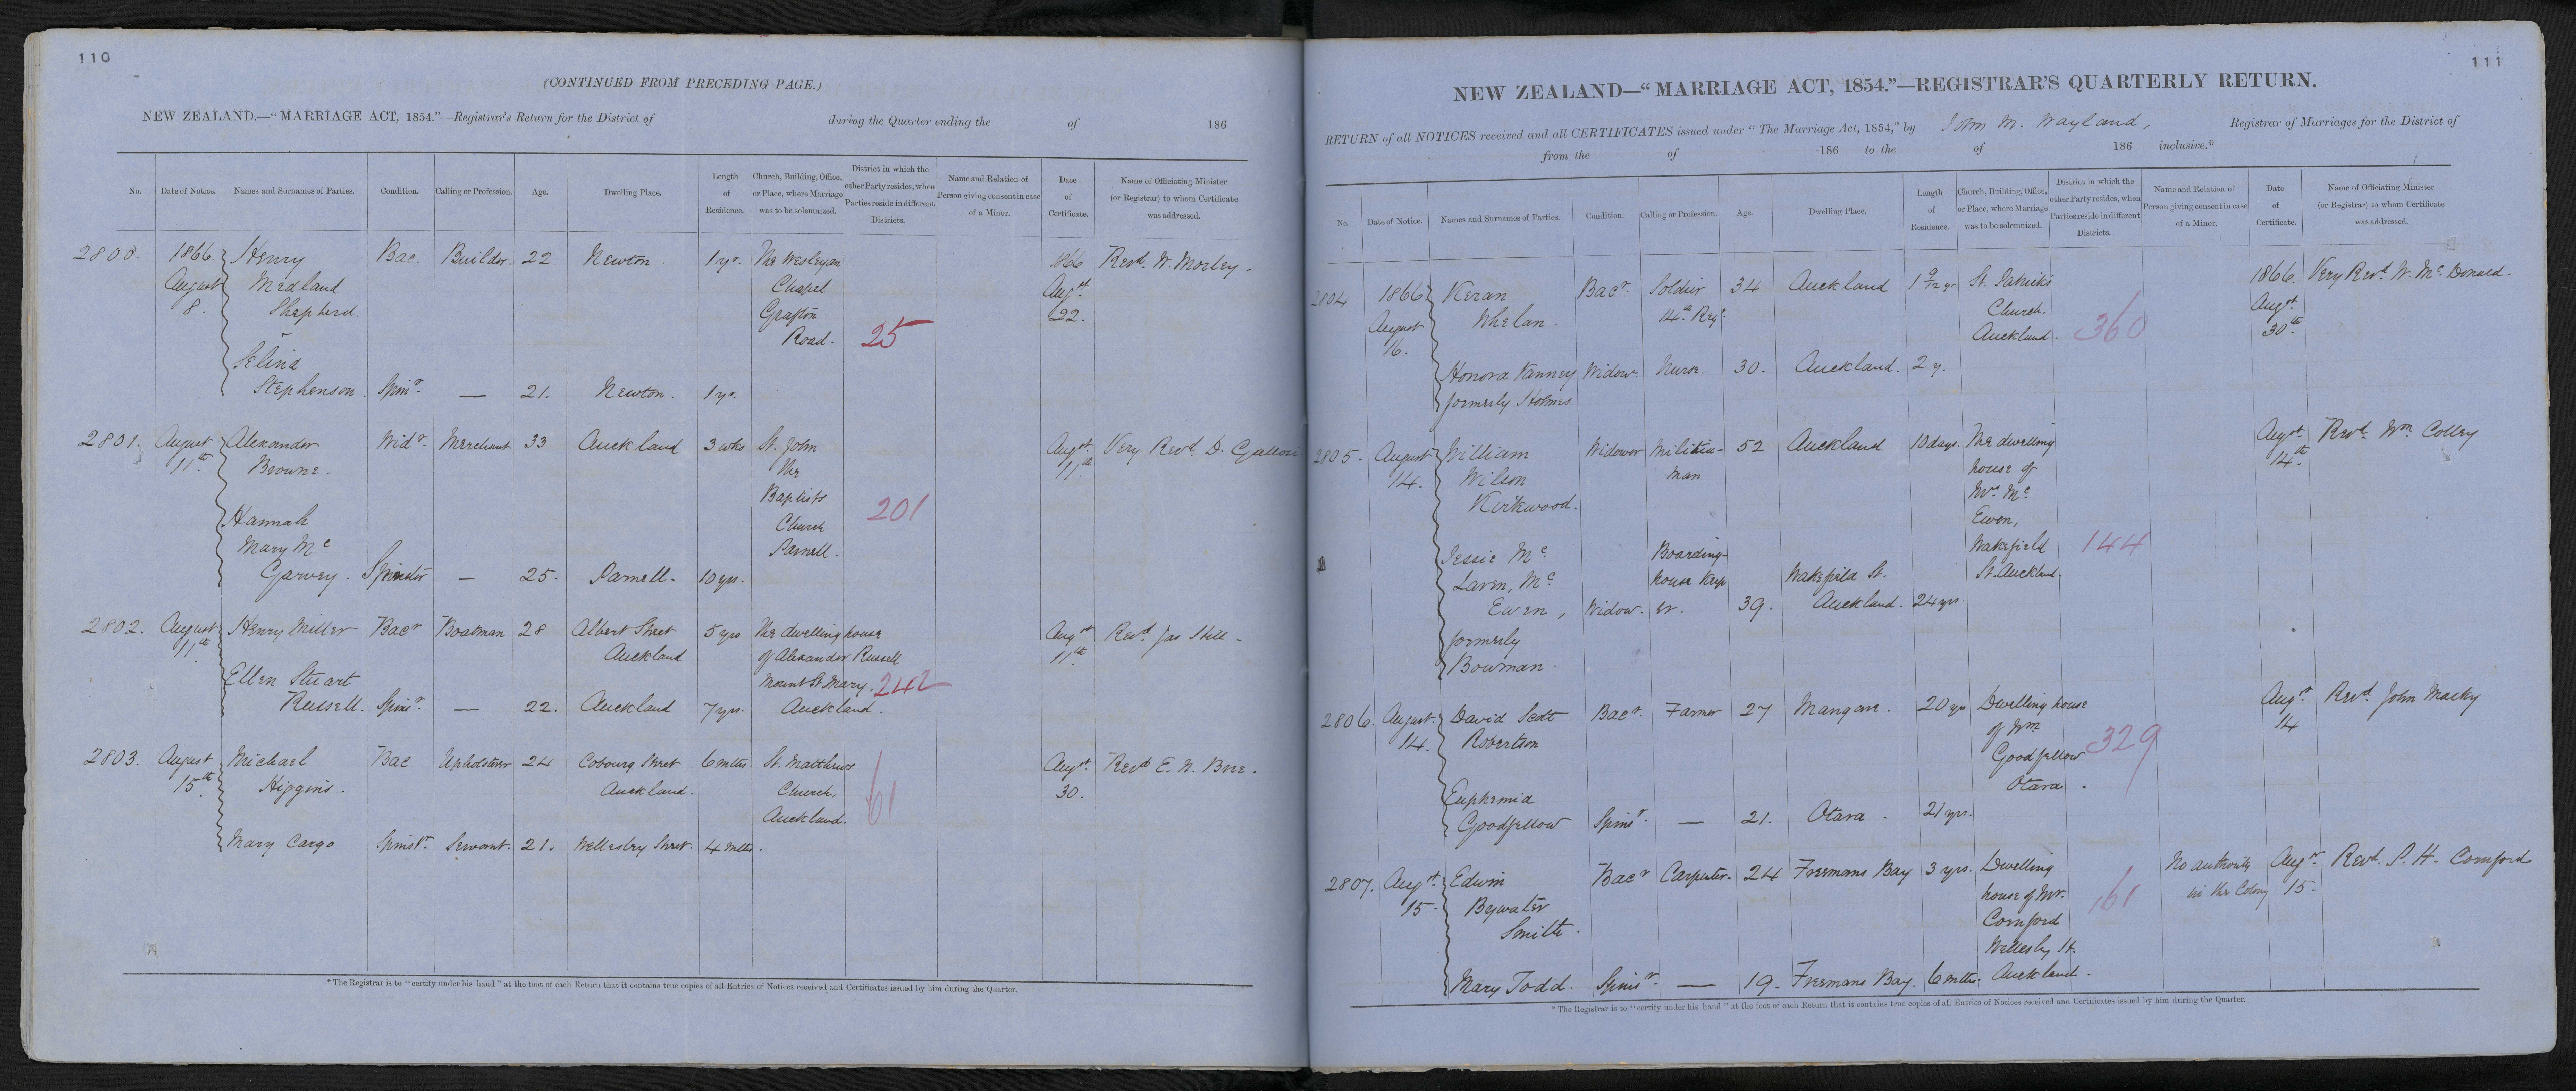 110
(CONTINUED FROM PRECEDING PAGE.)
NEW ZEALAND.—"MARRIAGE ACT, 1854."—Registrar's Return for the District of during the Quarter ending the of 186
No. Date of Notice. Names and Surnames of Parties. Condition. Calling or Profession. Age. Dwelling Place. Length of Residence. Church, Building, Office, or Place, where Marriage was to be solemnized. District in which the other Party resides, when Parties reside in different Districts. Name and Relation of Person giving consent in case of a Minor. Date of Certificate. Name of Officiating Minister (or Registrar) to whom Certificate was addressed.
2800. 1866. Henry Bac. Builder. 22. Newton. 1 yr. The Wesleyan 1866 Revd. W. Morley.
August Medland Chapel Augst
8. Shepherd. Grafton 22.
Road. 25
Selina
Stephenson. Spinr. — 21. Newton. 1 yr.
2801. August Alexander Widr. Merchant 33 Auckland 3 wks St. John Augst Very Revd. D.
11th Browne. the 11th
Baptists 201
Hannah Church
Mary Mc Parnell.
Garvey. Spinster — 25. Parnell. 10 yrs.
2802. August Henry Miller Bacr Boatman 28 Albert Street 5 yrs The dwelling house Augst Revd. Jas Hill.
11th Auckland of Alexander Russell 11th.
Ellen Stuart Mount St Mary. 242
Russell. Spinr. — 22. Auckland 7 yrs. Auckland.
2803. August Michael Bac Upholsterer 24 Cobourg Street 6 mths. St. Matthews Augst. Revd E. N. Bree.
15th Higgins. Auckland. Church, 61 30.
Auckland.
Mary Cargo Spinstr. Servant. 21. Wellesley Street. 4 mths.
*The Registrar is to "certify under his hand" at the foot of each Return that it contains true copies of all Entries of Notices received and Certificates issued by him during the Quarter.
111
NEW ZEALAND—"MARRIAGE ACT, 1854."—REGISTRAR'S QUARTERLY RETURN.
RETURN of all NOTICES received and all CERTIFICATES issued under "The Marriage Act, 1854," by John M. Wayland, Registrar of Marriages for the District of
from the of 186 to the of 186 inclusive.*
No. Date of Notice. Names and Surnames of Parties. Condition. Calling or Profession. Age. Dwelling Place. Length of Residence. Church, Building, Office, or Place, where Marriage was to be solemnized. District in which the other Party resides, when Parties reside in different Districts. Name and Relation of Person giving consent in case of a Minor. Date of Certificate. Name of Officiating Minister (or Registrar) to whom Certificate was addressed.
2804 1866 Keran Bacr. Soldier 34 Auckland 1 9/12 yr St. Patricks 1866. Very Revd. W. Mc. Donald.
August Whelan. 14th Regt Church, Augst
16. Auckland. 360 30th.
Honora Vanney Widow. Nurse. 30. Auckland. 2 y.
formerly Holmes
2805. August William Widower Militia- 52 Auckland 10 days. The dwelling Augst. Revd. Wm Colley
14. Wilson man house of 14th.
Kirkwood. Mrs Mc
Ewen,
Jessie Mc Boarding- Wakefield 144
Laren, Mc house keep Wakefield St. St. Auckland.
Ewen, Widow. er. 39. Auckland. 24 yrs.
formerly
Bowman.
2806. August David Scott Bacr. Farmer 27 Mangare. 20 yrs Dwelling house Augst Revd. John Macky
14. Robertson of Wm 14
Goodfellow 329
Otara.
Euphemia
Goodfellow Spinr. — 21. Otara. 21 yrs.
2807. Augst. Edwin Bacr Carpenter. 24 Freemans Bay 3 yrs. Dwelling No authority Augst. Revd. P. H. Cornford
15. Bywater house of Mr. 161 in the Colony 15.
Smith. Cornford
Wellesley St.
Mary Todd. Spinr. — 19. Freemans Bay. 6 mths. Auckland.
*The Registrar is to "certify under his hand" at the foot of each Return that it contains true copies of all Entries of Notices received and Certificates issued by him during the Quarter.